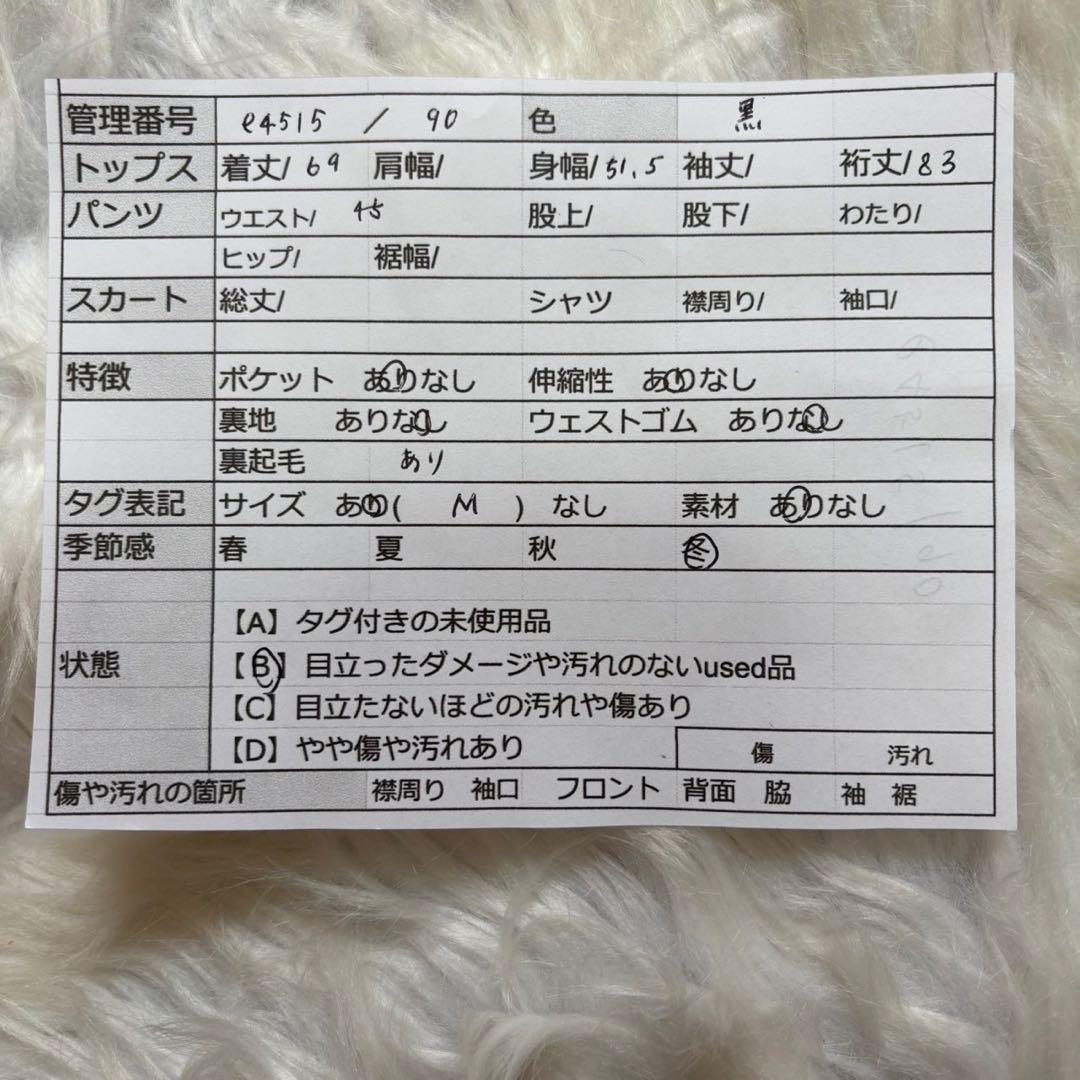 管理番号 e4515 / 90 色 黒
トップス 着丈/ 69 肩幅/ 身幅/ 51.5 袖丈/ 裄丈/ 83
パンツ ウエスト/ 45 股上/ 股下/ わたり/
ヒップ/ 裾幅/
スカート 総丈/ シャツ 襟周り/ 袖口/
特徴 ポケット ありなし 伸縮性 ありなし
裏地 ありなし ウェストゴム ありなし
裏起毛 あり
タグ表記 サイズ あり( M ) なし 素材 ありなし
季節感 春 夏 秋 冬
【A】タグ付きの未使用品
状態 【B】目立ったダメージや汚れのないused品
【C】目立たないほどの汚れや傷あり
【D】やや傷や汚れあり 傷 汚れ
傷や汚れの箇所 襟周り 袖口 フロント 背面 脇 袖 裾